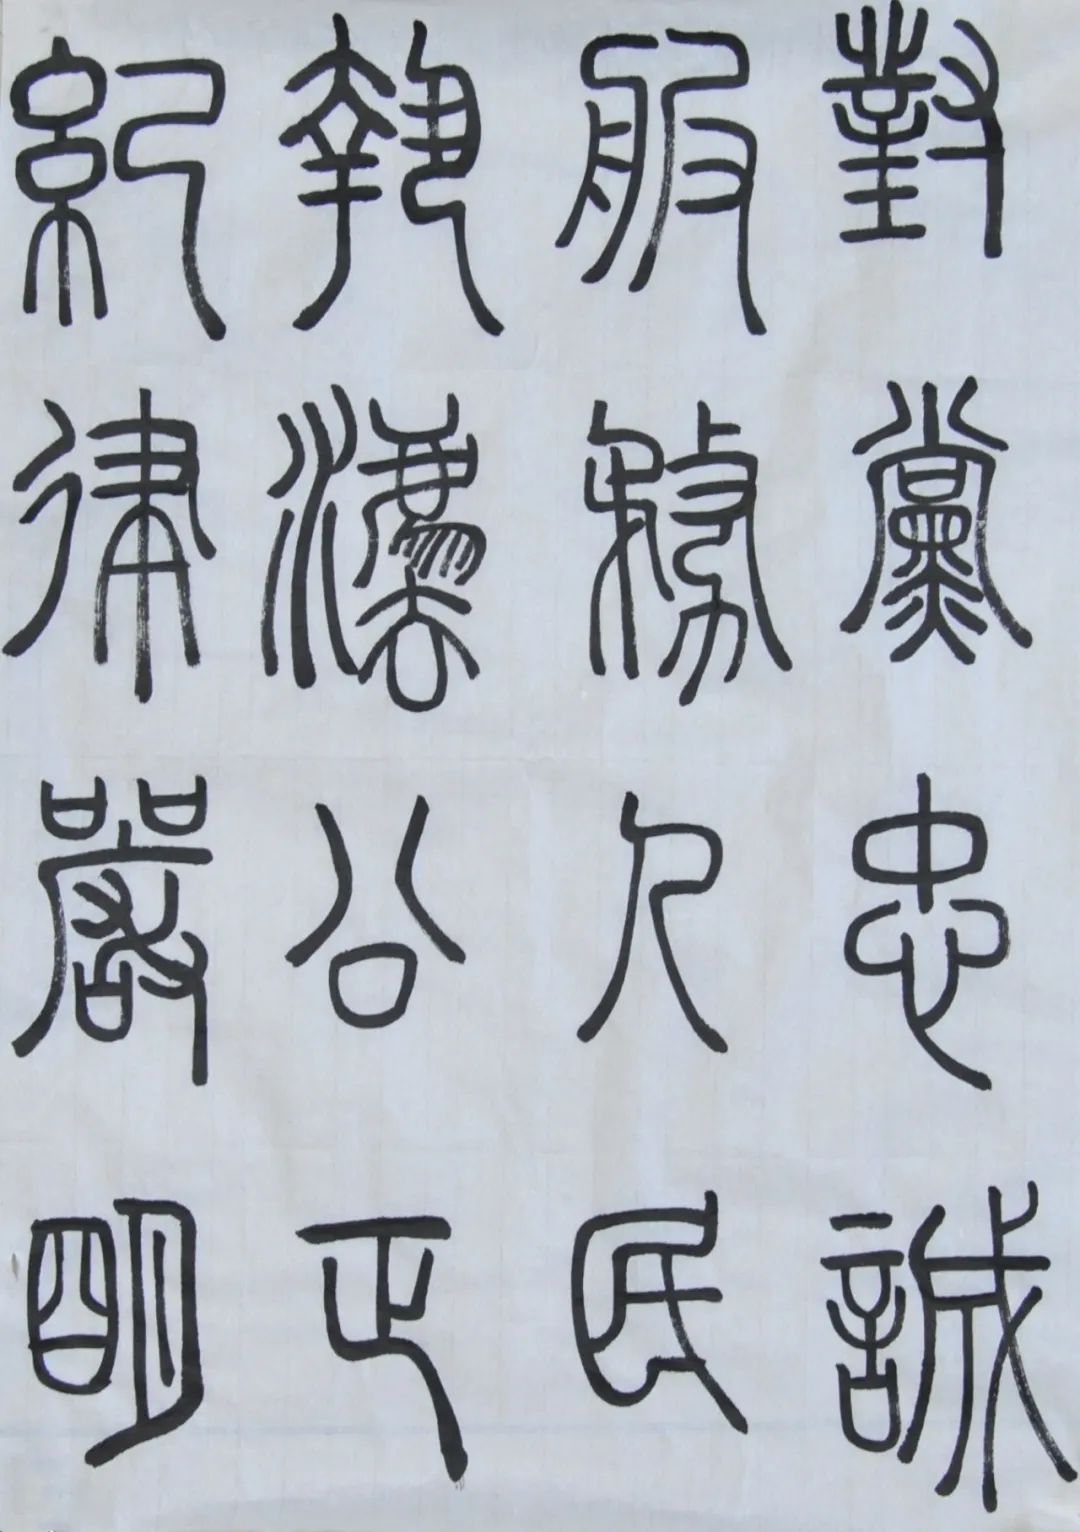 對黨忠誠
服務人民
執灋公正
紀律嚴明